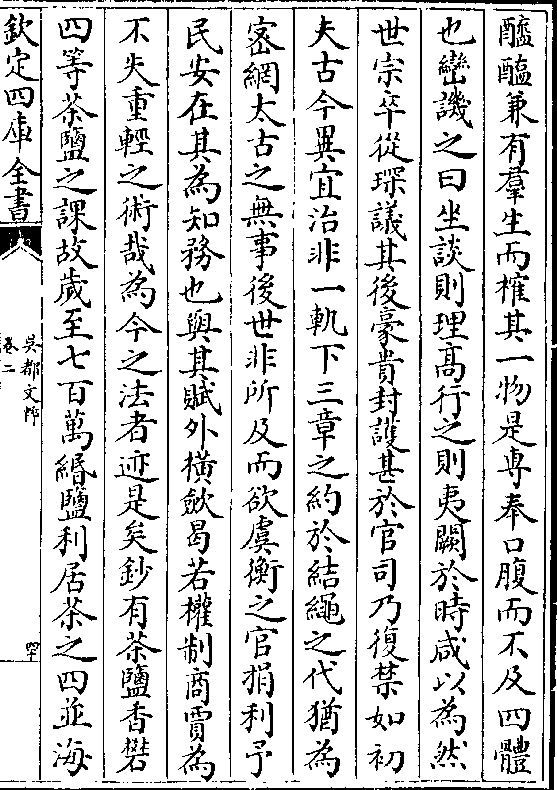 醯醢兼有羣生而榷其一物是専奉口腹而不及四體
也巒譏之曰坐談則理髙行之則夷闕於時咸以為然
世宗卒從琛議其後豪貴封護甚於官司乃復禁如初
夫古今異宜治非一軌下三章之約於結繩之代猶為
宻網太古之無事後世非所及而欲虞衡之官捐利予
民安在其為知務也與其賦外橫斂曷若權制商賈為
不失重輕之術哉為今之法者迹是矣鈔有茶鹽香礬
四等茶鹽之課故歲至七百萬緡鹽利居茶之四並海
欽定四庫全書
吳都文粹
卷二